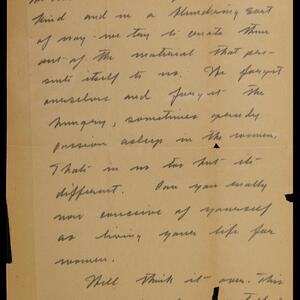 kind and in a blundering sort
of way we try to create them
out of the material that pre-
sents itself to us. We forget
ourselves and forget the
hungry, sometimes greedy
passion asleep in the women.
That's in us too but its
different. Can you really
now conceive of yourself
as living your life for
women.
Well think it over. This